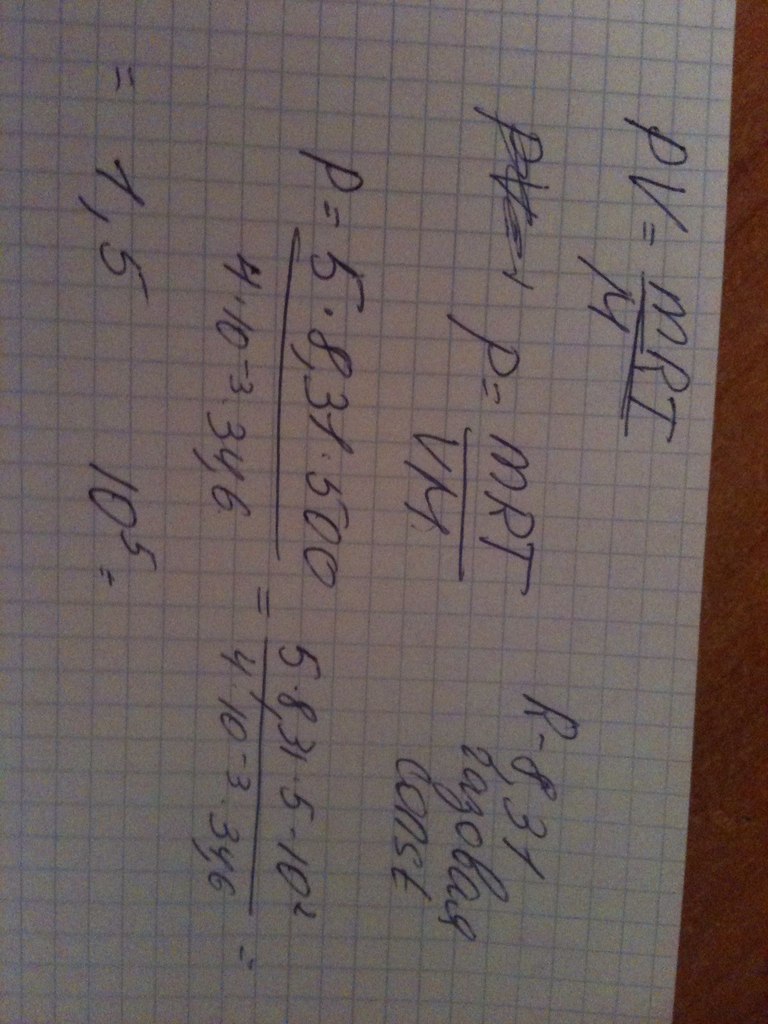 pV = mRT / M
p = mRT / VM
R - 8,31
газовая
const
p = 5 · 8,31 · 500 / 4 · 10⁻³ · 34,6 = 5 · 8,31 · 5 · 10² / 4 · 10⁻³ · 34,6 =
= 1,5 10⁵ =